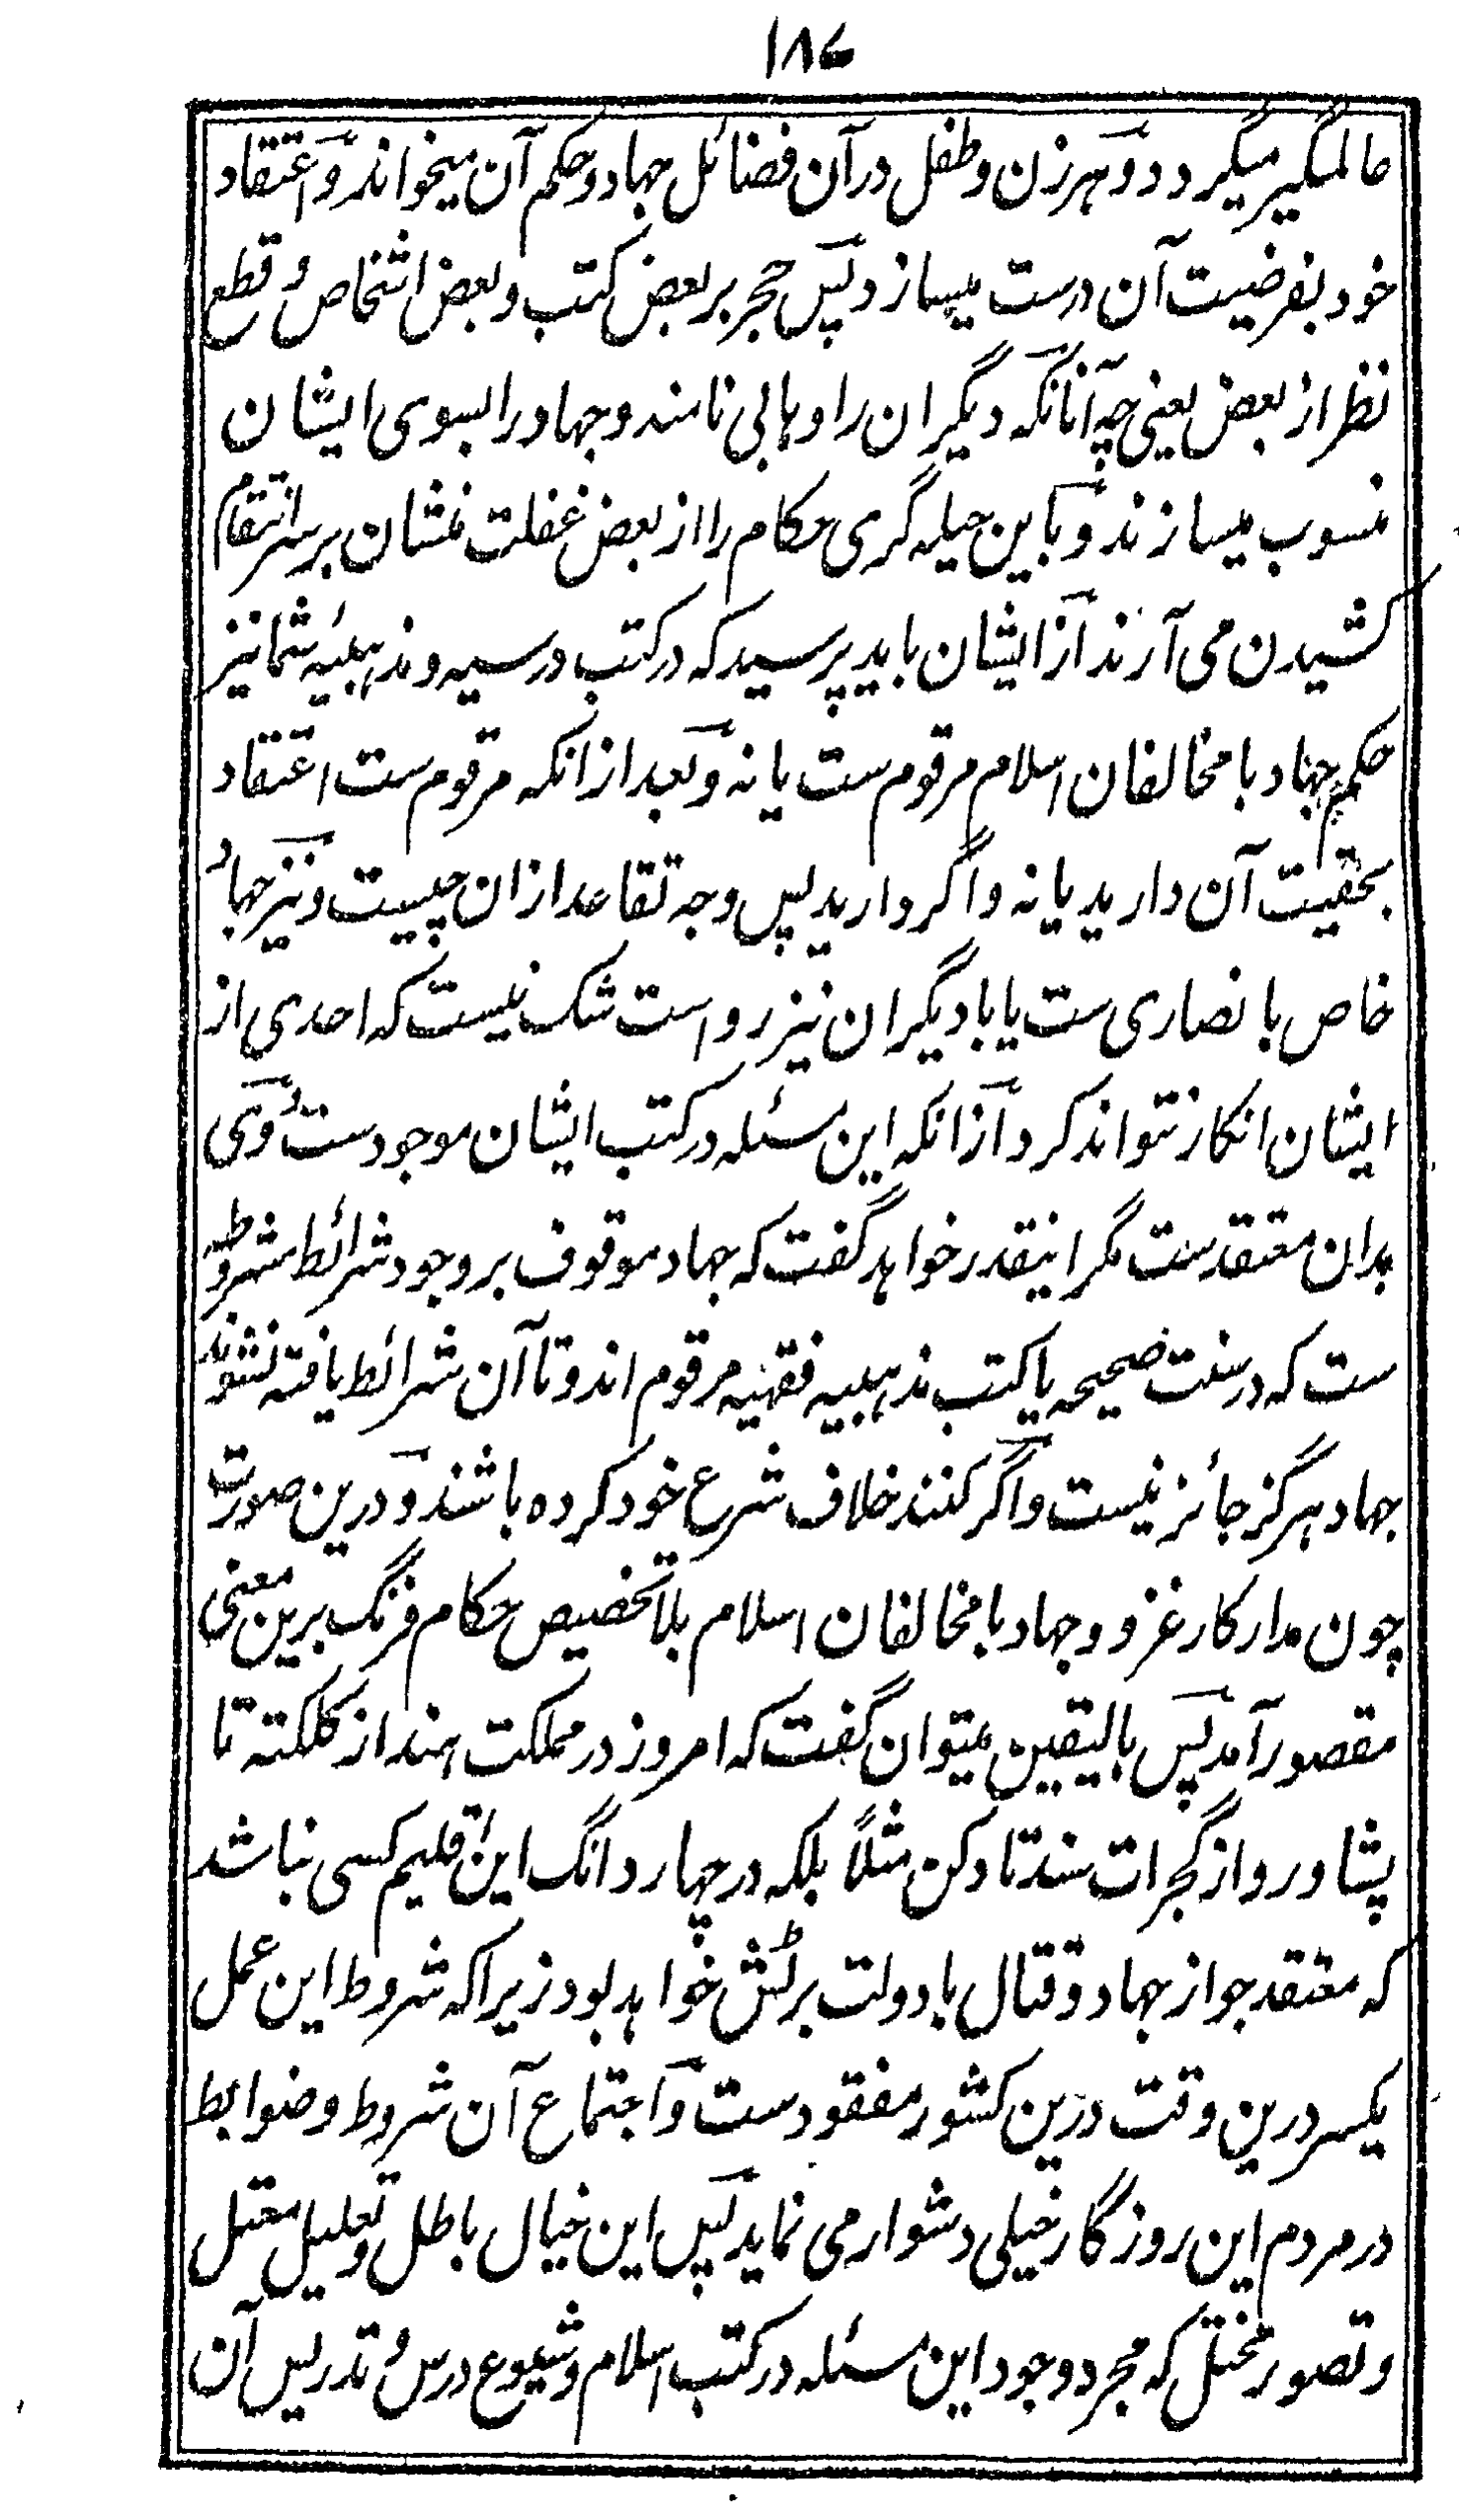 ۱۸۶
عالمگیر میگردد و هر زن و طفل در آن فضائل جهاد و حکم آن میخواند و اعتقاد
خود بفرضیت آن درست میسازد پس حجر بر بعض کتب و بعض اشخاص و قطع
نظر از بعض یعنی چه آنانکه دیگران را وهابی نامند و جهاد را بسوی ایشان
منسوب میسازند و باین حیله گری حکام را از بعض غفلت منشان بر سر انتقام
کشیدن می آرند از ایشان باید پرسید که در کتب درسیه و مذهبیه شما نیز
حکم جهاد با مخالفان اسلام مرقوم ست یا نه و بعد ازانکه مرقوم ست اعتقاد
بحقیت آن دارید یا نه و اگر دارید پس وجه تقاعد ازان چیست و نیز جهاد
خاص با نصاری ست یا با دیگران نیز رواست شک نیست که احدی از
ایشان انکار نتواند کرد ازانکه این مسئله در کتب ایشان موجود ست و وی
بدان معتقد ست مگر اینقدر خواهد گفت که جهاد موقوف بر وجود شرائط مشروطه
ست که در سنت صحیحه یا کتب مذهبیه فقهیه مرقوم اند و تا آن شرائط یافته نشوند
جهاد هرگز جائز نیست و اگر کنند خلاف شرع خود کرده باشند و درین صورت
چون مدار کار غزو و جهاد با مخالفان اسلام بلا تخصیص حکام فرنگ برین معنی
مقصور آمد پس بالیقین میتوان گفت که امروز در مملکت هند از کلکته تا
پشاور و از گجرات سند تا دکن مثلاً بلکه در چهار دانگ این اقلیم کسی نباشد
که معتقد جواز جهاد و قتال با دولت برٹش خواهد بود زیرا که شروط این عمل
یکسر درین وقت درین کشور مفقود ست و اجتماع آن شروط و ضوابط
در مردم این روزگار خیلی دشوار می نماید پس این خیال باطل و تعلیل معتل
و تصور مختل که مجرد وجود این مسئله در کتب اسلام و شیوع درس و تدریس آن